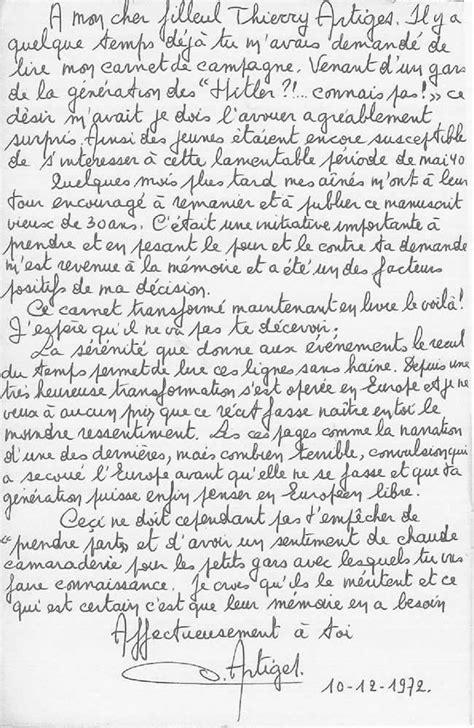 A mon cher filleul Thierry Artiges. Il y a
quelque temps déjà tu m'avais demandé de
lire mon carnet de campagne. Venant d'un gars
de la génération des "Hitler?!... connais pas!" ce
désir m'avait je dois l'avouer agréablement
surpris. Ainsi des jeunes étaient encore susceptible
de s'intéresser à cette lamentable période de mai 40
Quelques mois plus tard mes aînés m'ont à leur
tour encouragé à remanier et à publier ce manuscrit
vieux de 30 ans. C'était une initiative importante à
prendre et en pesant le pour et le contre ta demande
m'est revenue à la mémoire et a été un des facteurs
positifs de ma décision.
Ce carnet transformé maintenant en livre le voilà!
J'espère qu'il ne va pas te décevoir.
La sérénité que donne aux événements le recul
du temps permet de lire ces lignes sans haine. Depuis une
très heureuse transformation s'est opérée en Europe et je ne
veux à aucun prix que ce récit fasse naître en toi le
moindre ressentiment. Lis ces pages comme la narration
d'une des dernières, mais combien terrible, convulsion qui
a secoué l'Europe avant qu'elle ne se fasse et que ta
génération puisse enfin penser en Européen libre.
Ceci ne doit cependant pas t'empêcher de
"prendre part" et d'avoir un sentiment de chaude
camaraderie pour les petits gars avec lesquels tu vas
faire connaissance. Je crois qu'ils le méritent et ce
qui est certain c'est que leur mémoire en a besoin
Affectueusement à toi
Artiges.
10-12-1972.